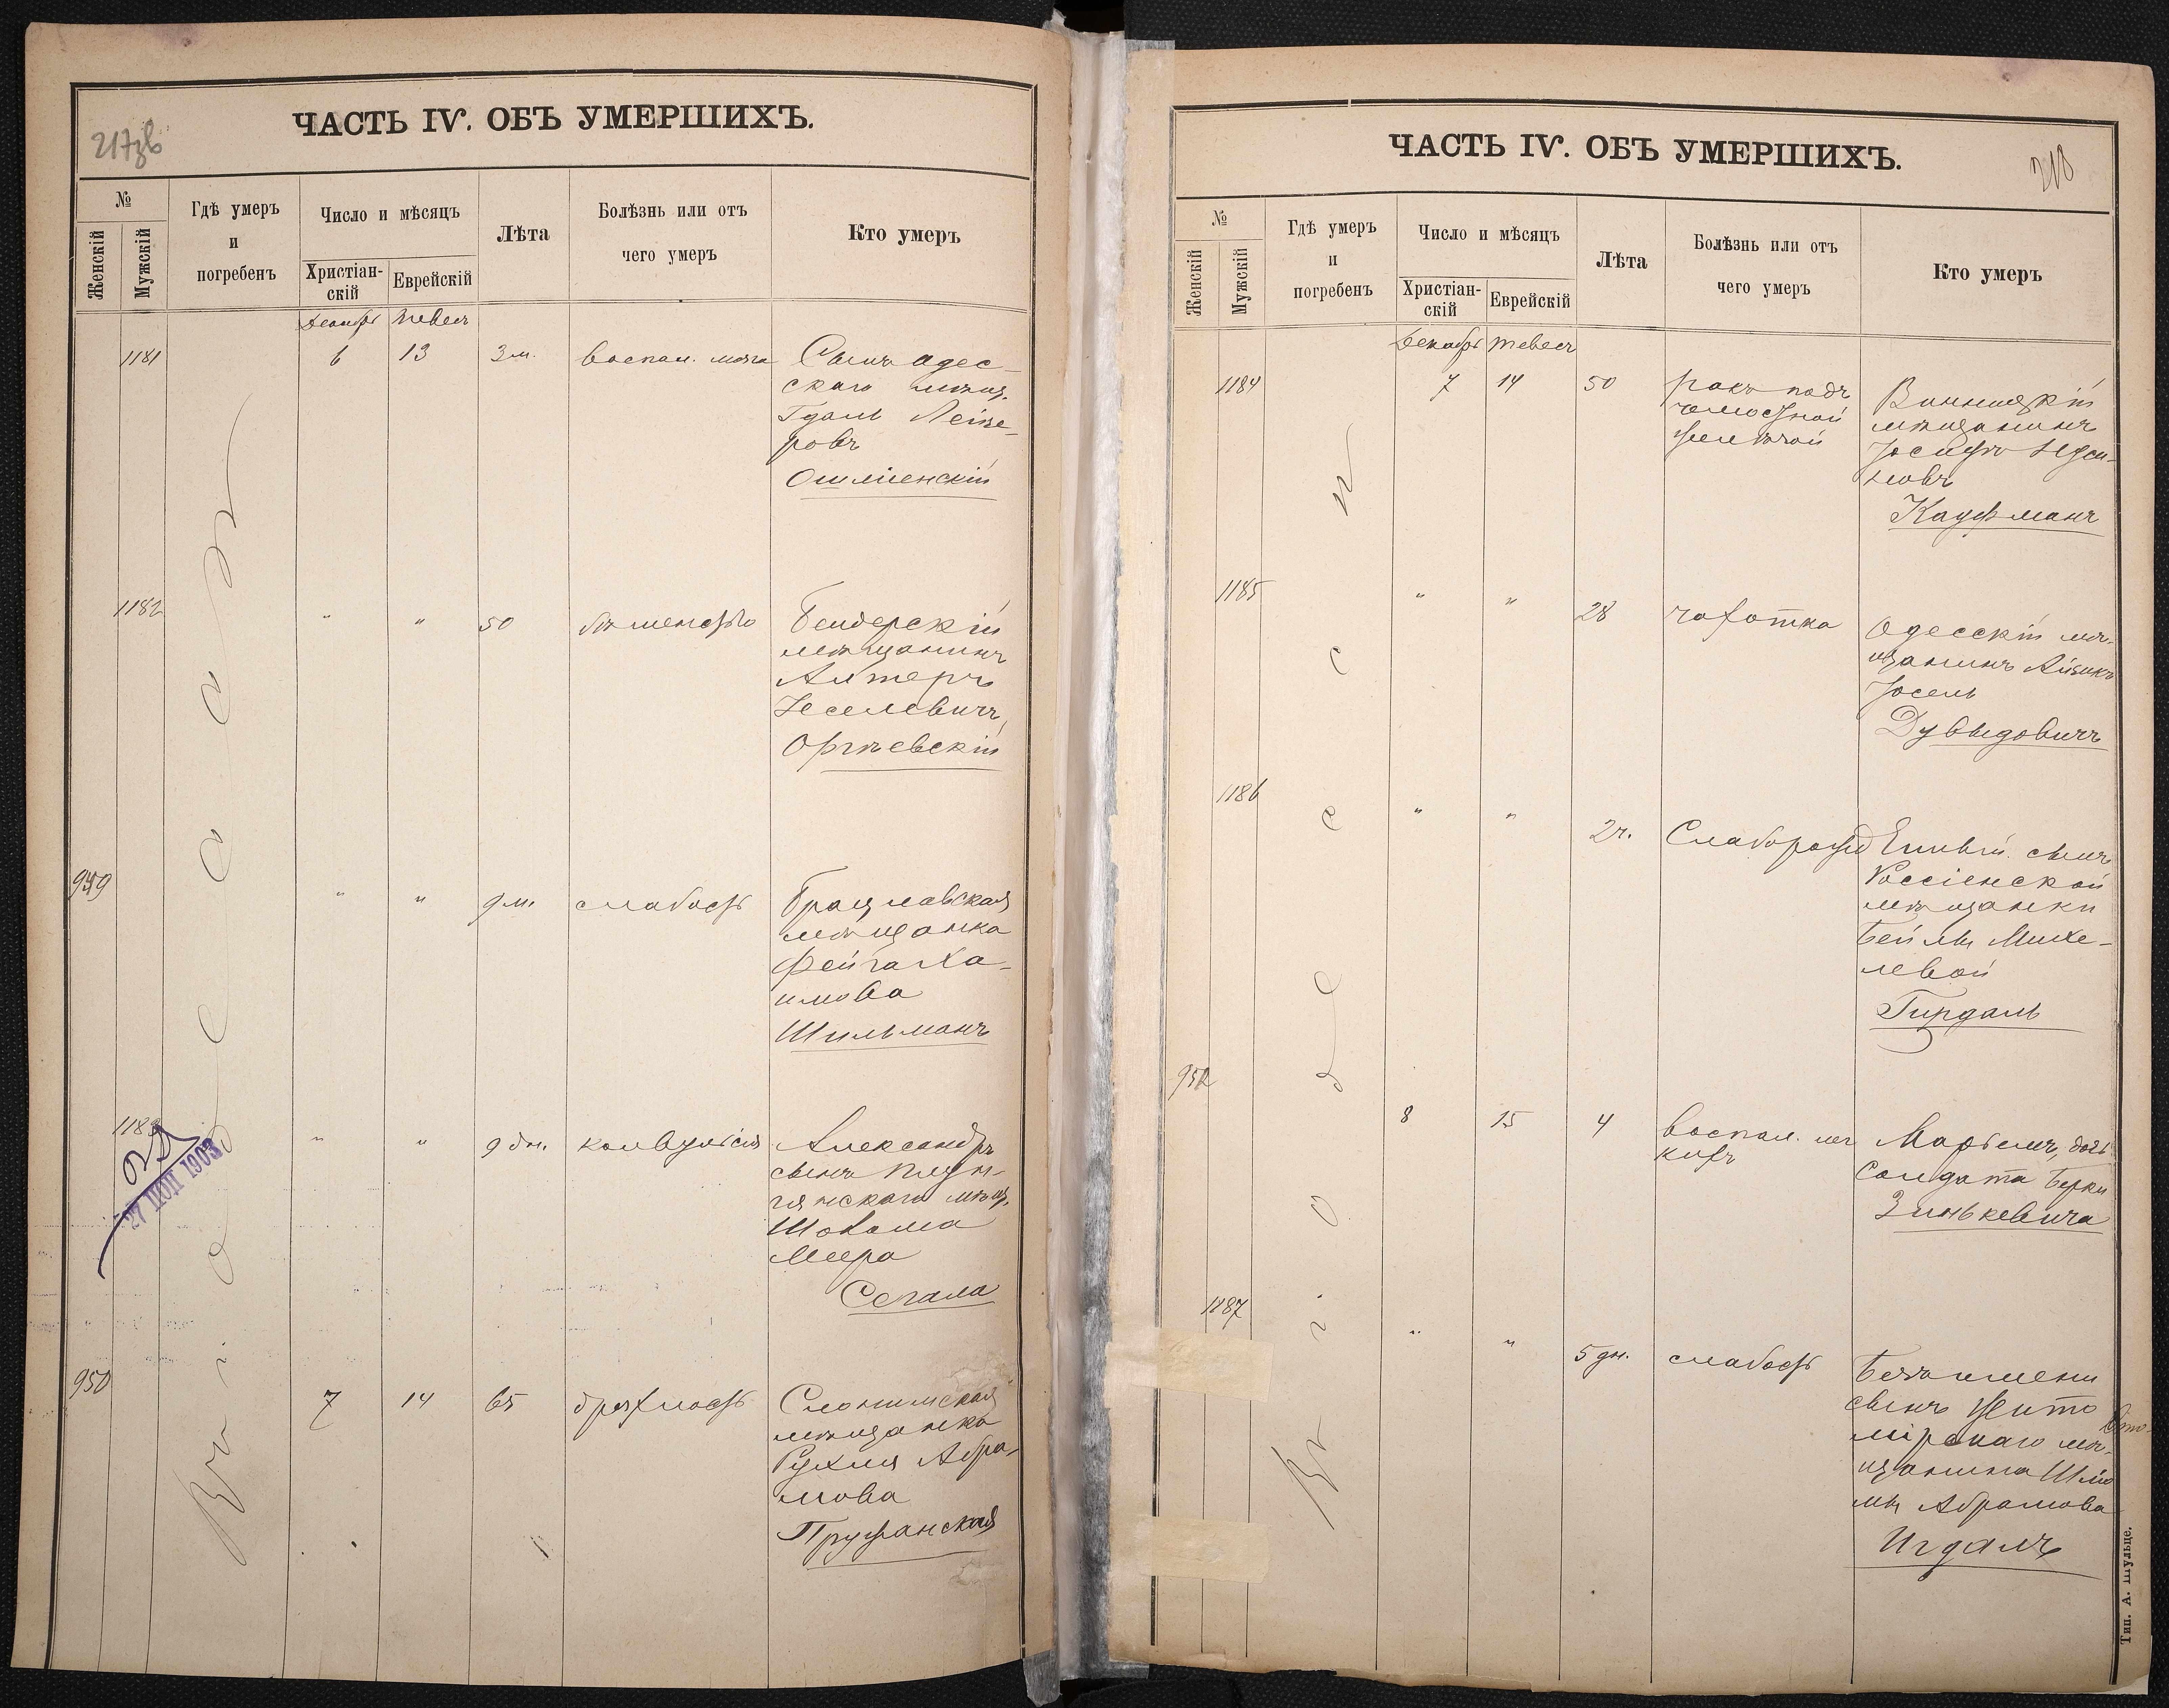 ЧАСТЬ IV. ОБЪ УМЕРШИХЪ.
217зв
№
Женскій
Мужскій
Гдѣ умеръ
и
погребенъ
Число и мѣсяцъ
Христіан-
скій
Еврейскій
Лѣта
Болѣзнь или отъ
чего умеръ
Кто умеръ
Декабр Тевесъ
1181 6 13 3 м. Воспал. мозга Сынъ одес-
скаго мѣщ.
Гдаль Лейзе-
ровъ
Ошміенскій
1182 " " 50 бѣшенство Бендерскій
мѣщанинъ
Алтеръ
Іеселевичъ
Оргѣевскій
949 " " 9 м. слабость Брацлавская
мѣщанка
Фейга Ха-
имова
Шильманъ
1183 " " 9 дн. конвульсія Александръ
сынъ Плун-
гянскаго мѣщ.
Шохома
Меера
Сегала
27 ІЮЛ 1903
950 7 14 65 дряхлость Слонимская
мѣщанка
Рухля Абра-
мова
Пружанская
Въ г. Одессѣ
ЧАСТЬ IV. ОБЪ УМЕРШИХЪ.
218
№
Женскій
Мужскій
Гдѣ умеръ
и
погребенъ
Число и мѣсяцъ
Христіан-
скій
Еврейскій
Лѣта
Болѣзнь или отъ
чего умеръ
Кто умеръ
Декабр Тевесъ
1184 7 14 50 ракъ подъ
челюстной
железой
Винницкій
мѣщанинъ
Іосифъ
Кауфманъ
1185 " " 28 чахотка Одесскій мѣ-
щанинъ Айзикъ
Іосель
Дувыдовичъ
1186 " " 2 ч. Слаборожд сынъ
Россіенской
мѣщанки
Бейлы Михе-
левой
Гирдаль
951 8 15 4 воспал. лег
кихъ
дочь
Солдата Берки
Зинькевича
1187 " " 5 дн. слабость Безъ имени
сынъ Жито
мірскаго мѣ-
щанина Шлио
мы Абрамова
Игдалъ
Въ г. Одессѣ
Тип. А. Шульце.